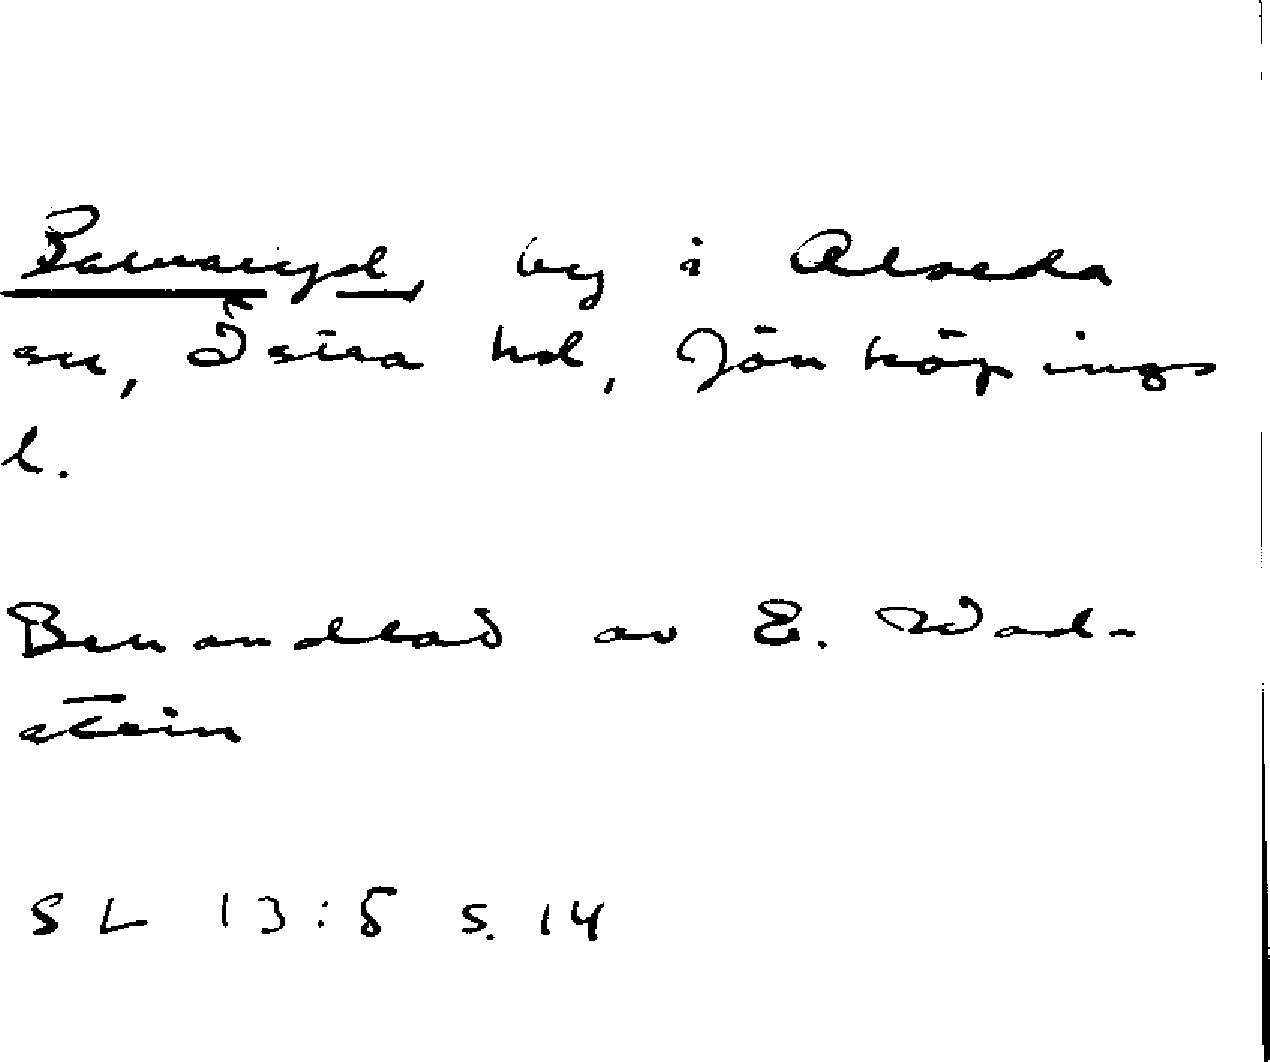 by i Alseda
sn, Östra hd, Jönköpings
l.
Behandlad av E. Wad-
stein
SL 13:5 s. 14